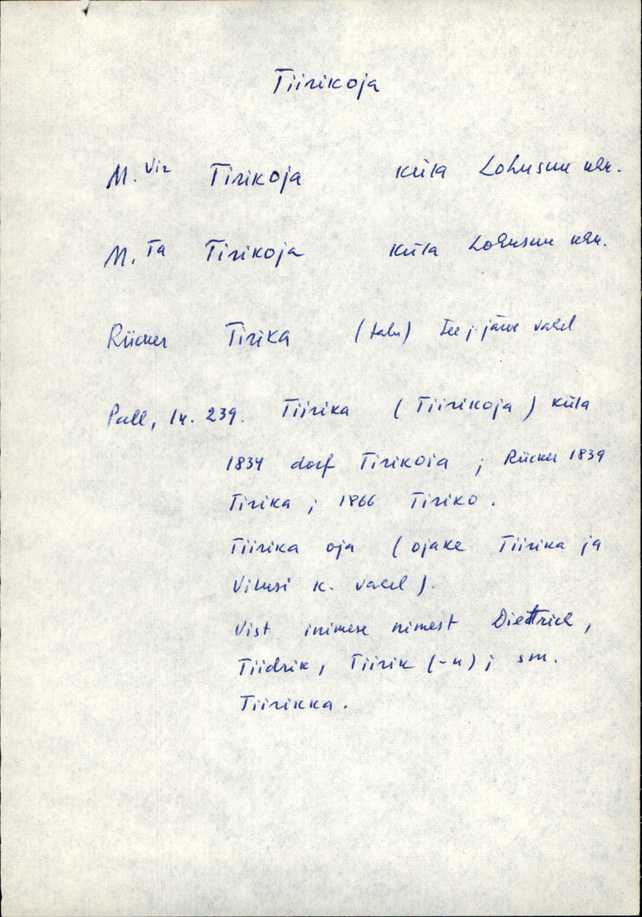 Tiirikoja
M. Vir Tirikoja küla Lohusuu khk.
M. Ta Tirikoja küla Lohusuu khk.
Rücker Tirika (talu) tee j. järve vahel
Pall, lk. 239. Tiirika (Tiirikoja) küla
1834 dorf Tirikoia ; Rücker 1839
Tirika ; 1866 Tiriko.
Tiirika oja (ojake Tiirika ja
Vilusi k. vahel).
Vist inimese nimest Diettrich,
Tiidrik, Tiirik (-u) ; sm.
Tiirikka.